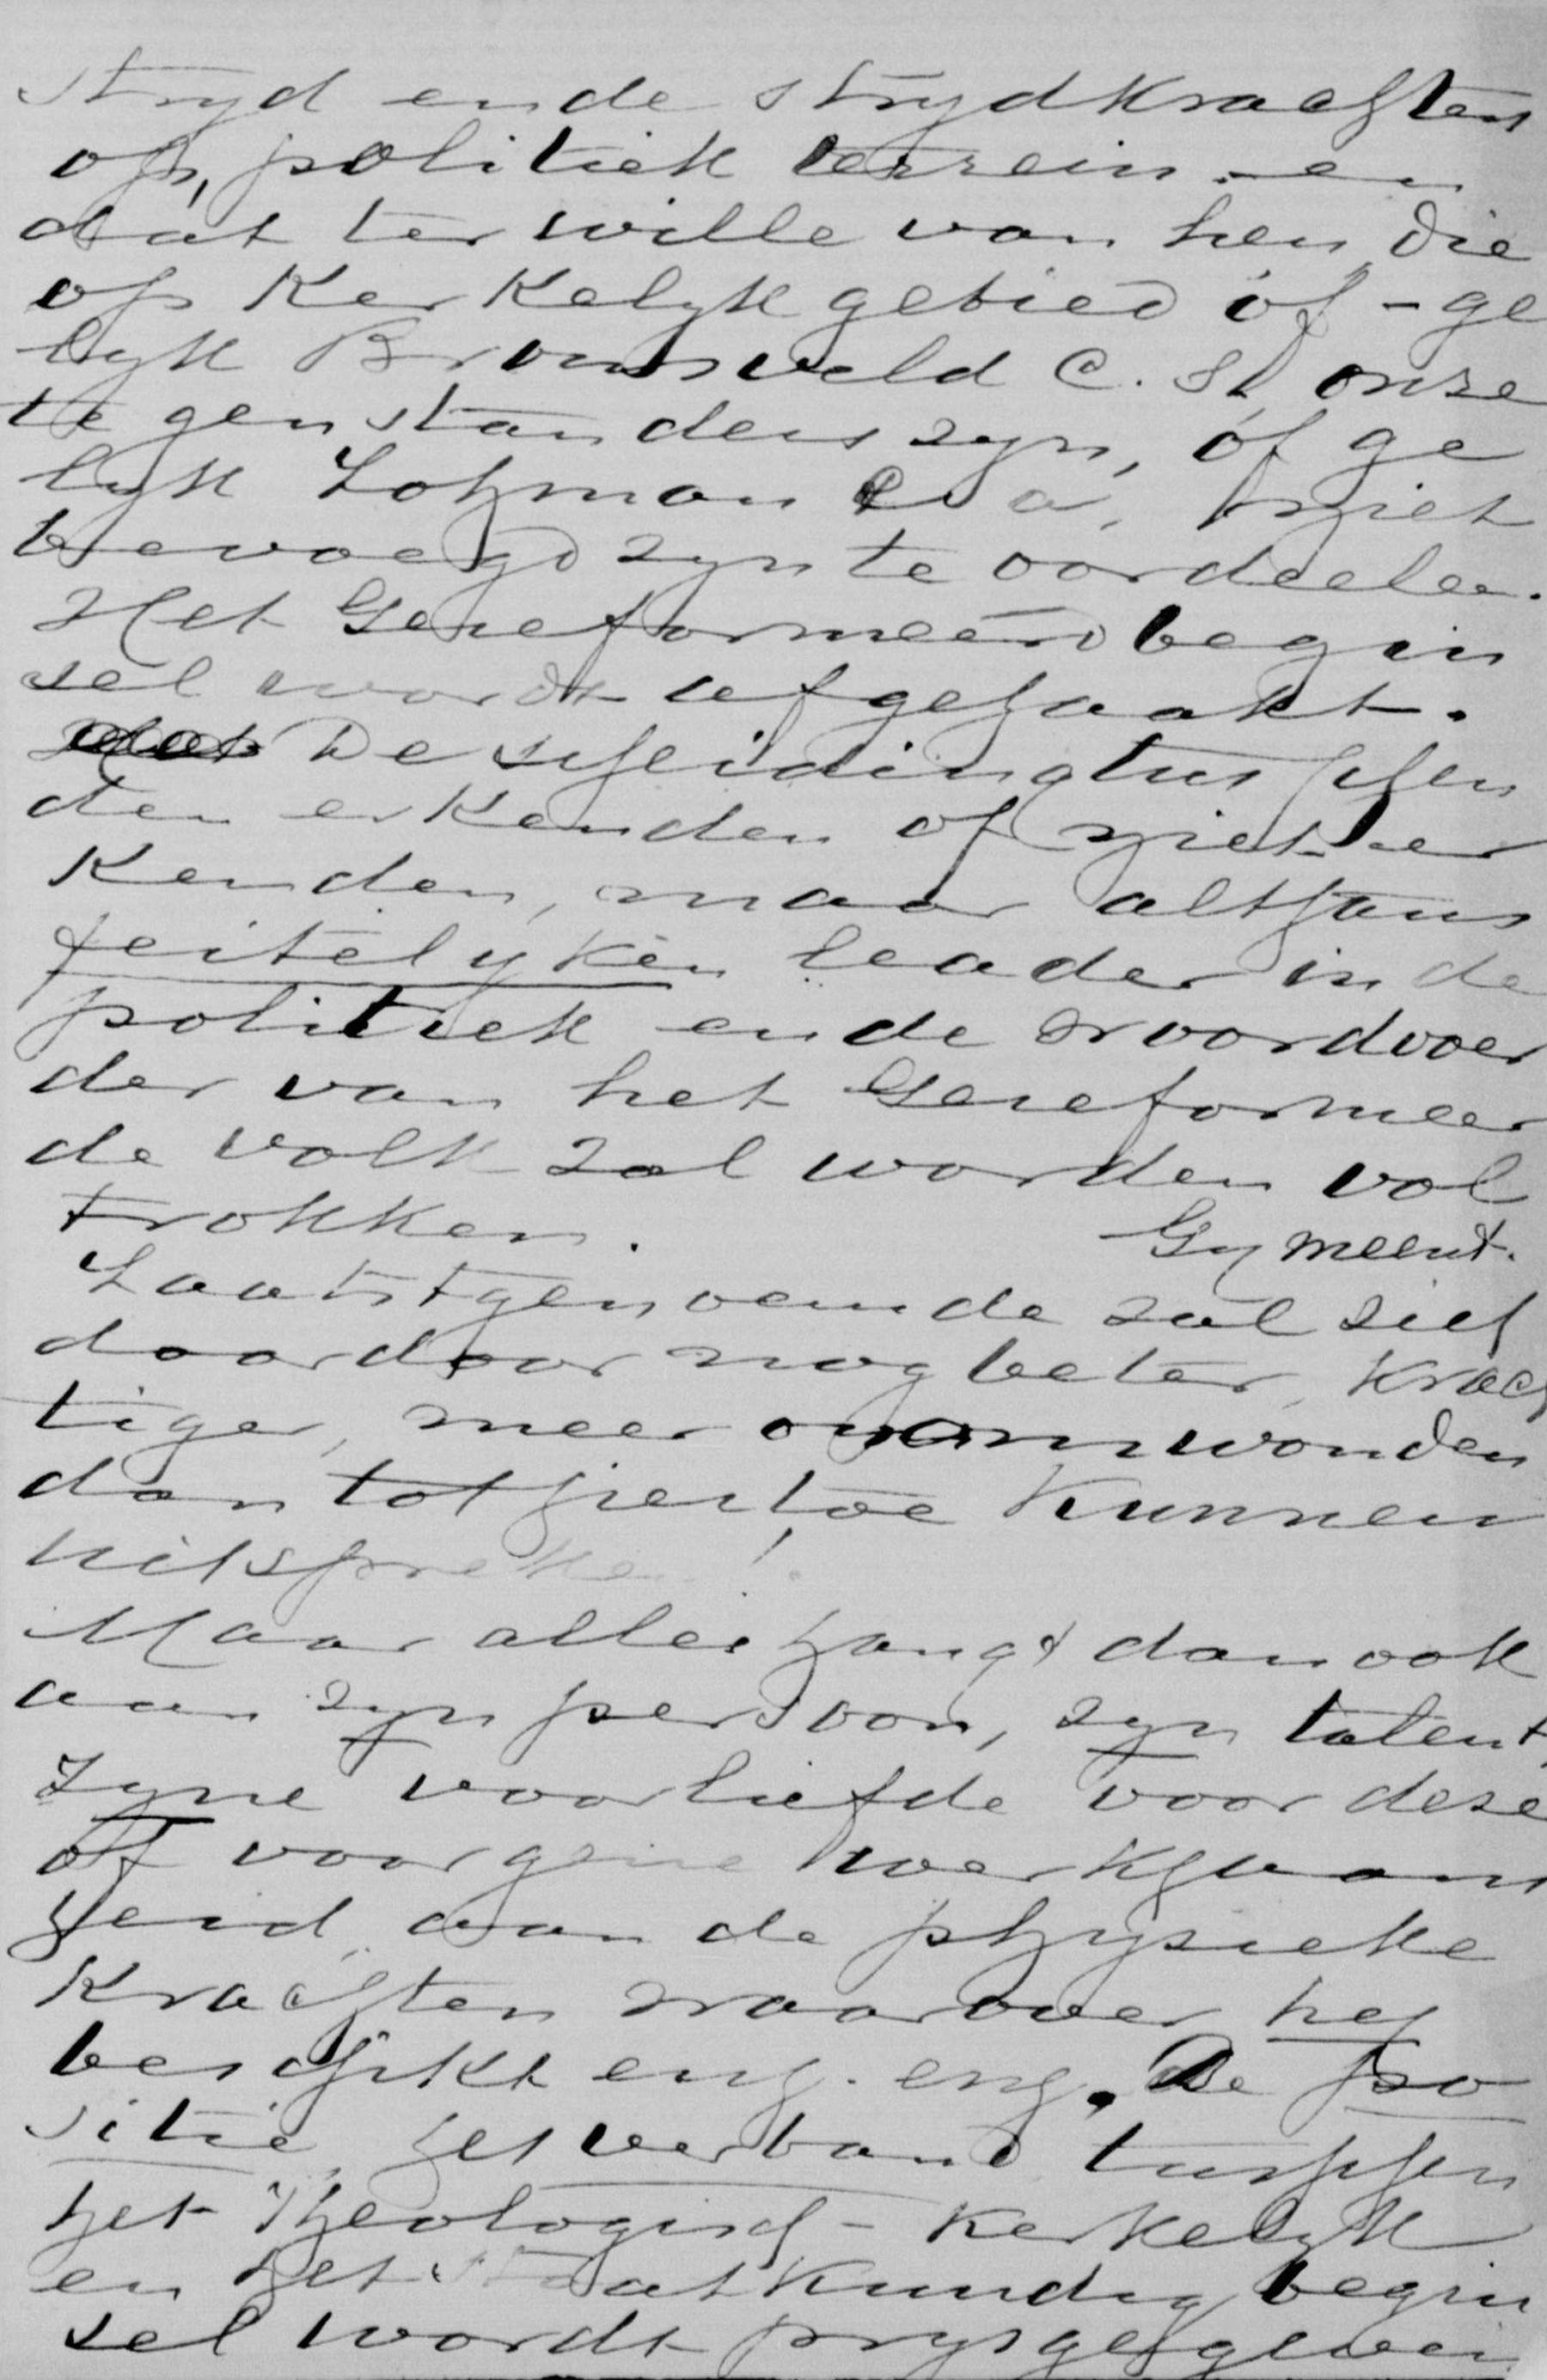 stryd en de strydkrachten
op politiek terrein - en
dat ter wille van hen, die
op Kerkelyk gebied òf - ge
lyk Bronsveld c. s. onze
tegenstanders zyn, òf ge
lyk Lohman e. a. niet
bevoegd zyn te oordeelen.
Het Gereformeerd begin
sel wordt afgehaakt.
De scheiding tusschen
den erkenden of niet er
kenden, maar althans
feitelyken leader in de
politiek en de woordvoer
der van het Gereformeer
de volk zal worden vol
trokken.
Gy meent.
Laatstgenoemde zal zich
daardoor nog beter, krach
tiger, meer onomwonden
dan tot hiertoe kunnen
uitspreken!
Maar alles hangt dan ook
aan zyn persoon, zyn talent,
zyne voorliefde voor deze
of voor gene werkzaam
heid, aan de physieke
krachten waarover hy
beschikt enz. enz. De po
sitie, het verband tusschen
het Theologisch - Kerkelyk
en het Staatkundig begin
sel wordt prysgegeven